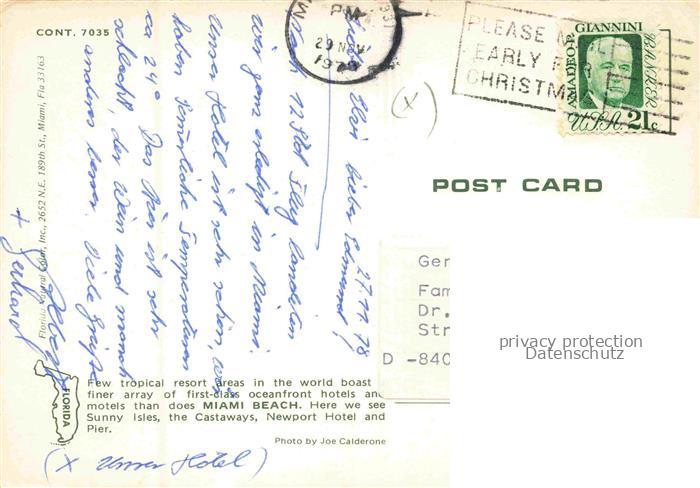 CONT. 7035
Florida Natural Color, Inc., 2652 N.E. 189th St., Miami, Fla 33163
PM
29 NOV
1978
PLEASE M
EARLY F
CHRISTM
AMADEO P. GIANNINI
BANKER
USA 21c
(X)
POST CARD
27.11.78
Elsi, lieber Edmund!
Nach 12 Std Flug landeten
wir ganz erledigt in Miami.
Unser Hotel ist sehr schön, wir
haben Temperaturen
ca 24° Das Bier ist sehr
schlecht, der Wein und manch
anderes besser. Viele Grüße
+ Gerhard
Ger
Fam
Dr.
Str
D -840
privacy protection
Datenschutz
FLORIDA
Few tropical resort areas in the world boast
finer array of first-class oceanfront hotels and
motels than does MIAMI BEACH. Here we see
Sunny Isles, the Castaways, Newport Hotel and
Pier.
Photo by Joe Calderone
(X Unser Hotel)